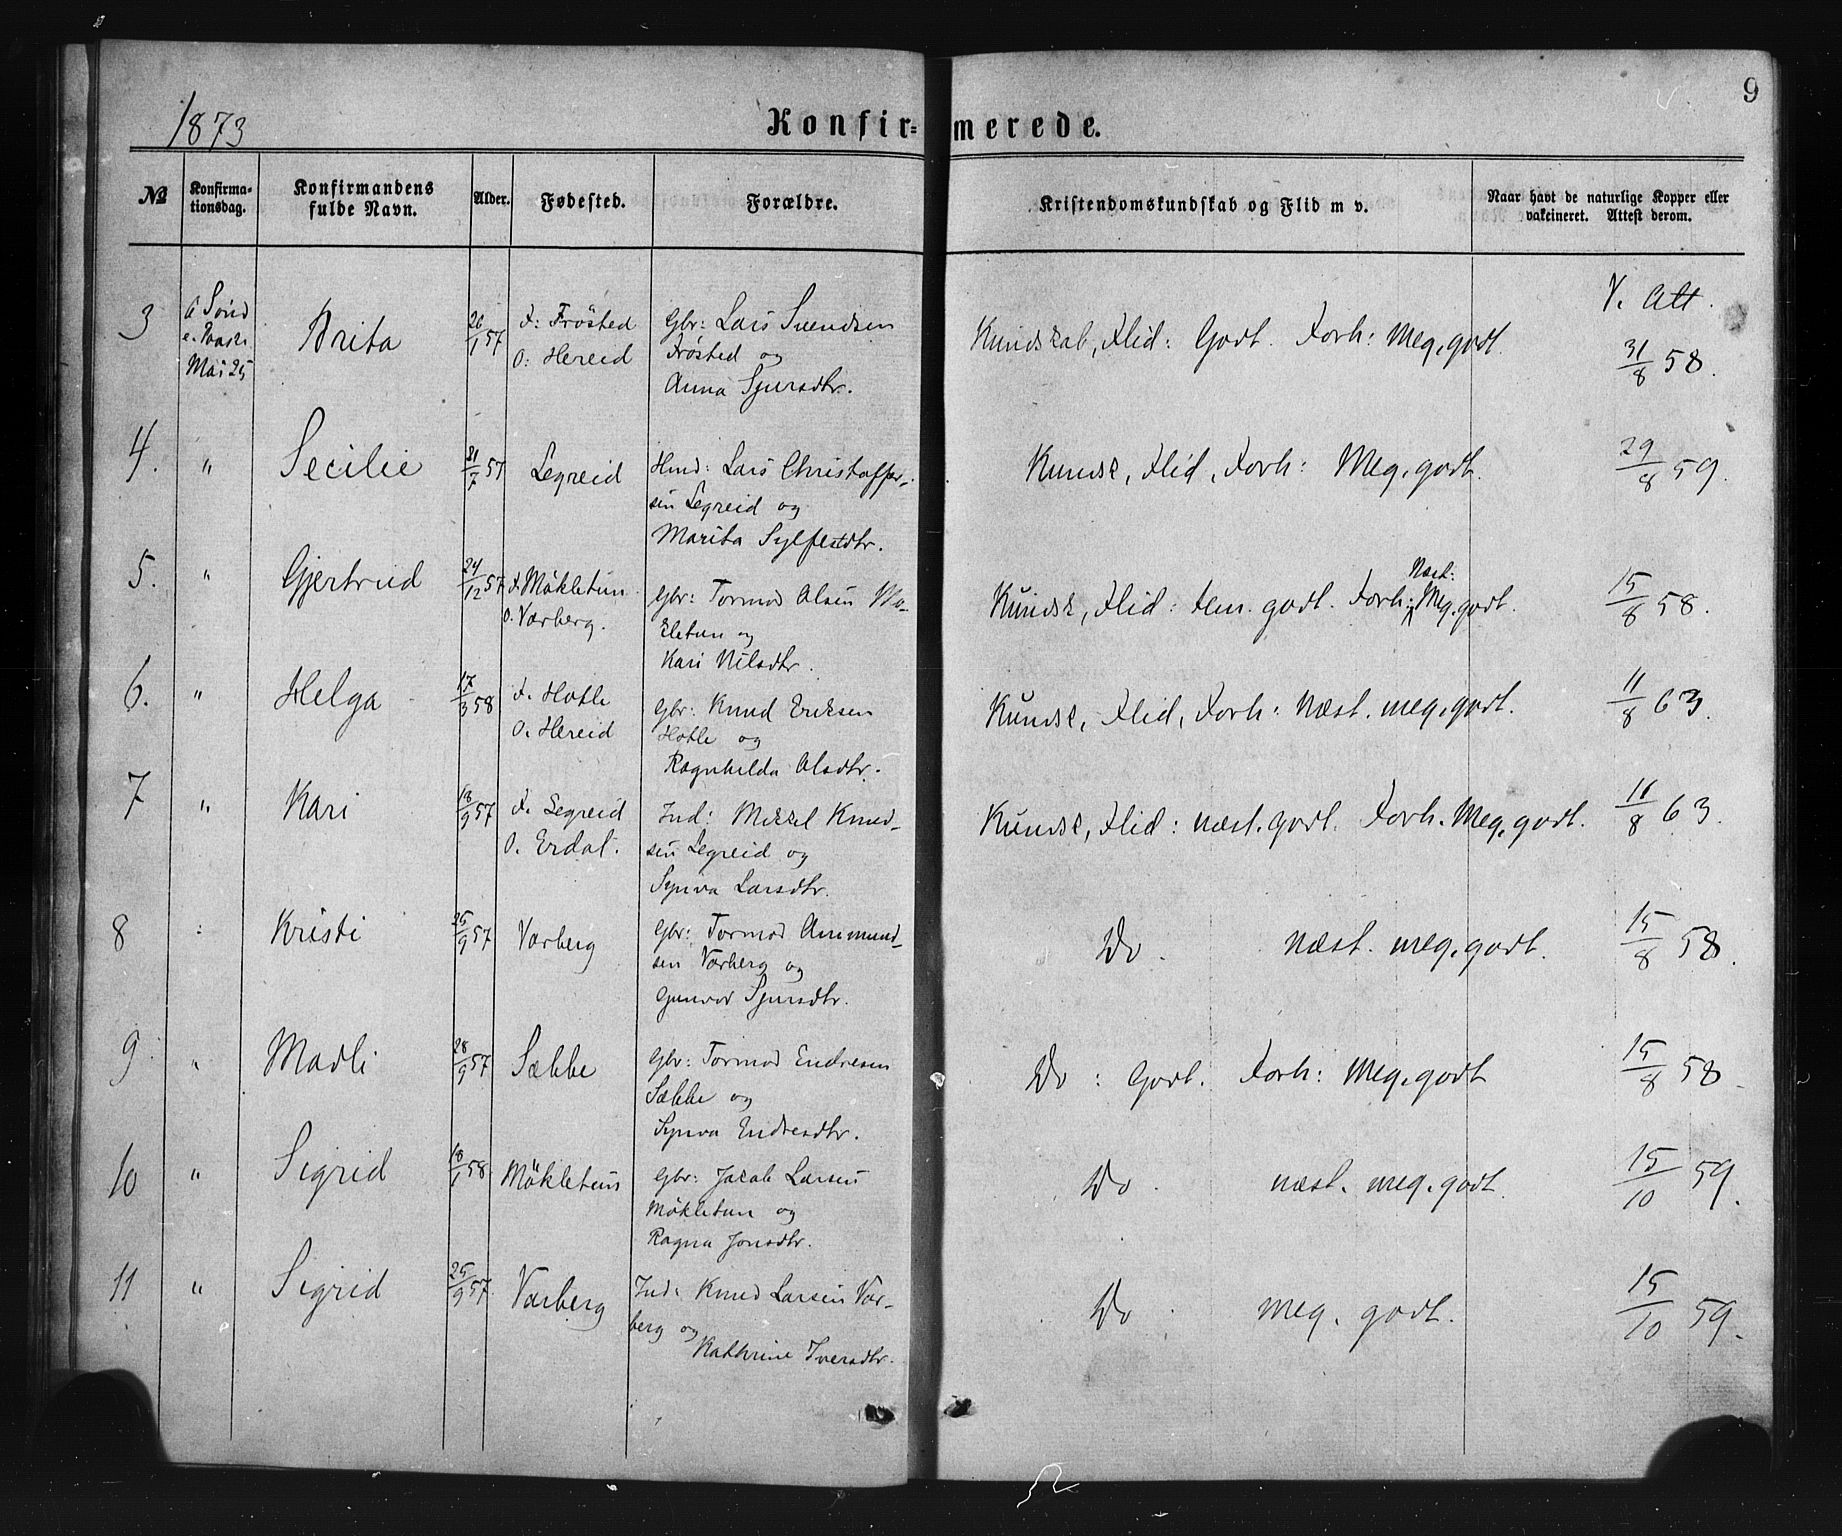 9
1873
Konfir=merede.
No
Konfirma-
tionsdag.
Konfirmandens
fulde Navn.
Alder.
Fødested.
Forældre.
Kristendomskundskab og Flid m v.
Naar havt de naturlige Kopper eller
vakcineret. Attest derom.
3
6 Sønd
e. Paask
Mai 25
Brita
26/1 57
F: Frøsted
O: Hereid
Gbr: Lars Svendsen
Frøsted og
Anna Sjursdtr.
Kundskab, Flid: Godt. Forh: Meg. godt.
V. Att.
31/8 58.
4.
"
Secilie
21/7 57
Legreid
Hmd: Lars Christoffer-
sen Legreid og
Marita Sylfestdtr.
Kundsk, Flid, Forh: Meg. godt.
29/8 59.
5.
"
Gjertrud
24/12 57
F. Møkletun
O. Varberg.
Gbr: Tormod Olsen Mø-
kletun og
Kari Nilsdtr.
Kundsk, Flid: tem. godt. Forh: Næst: Meg. godt.
15/8 58.
6.
"
Helga
17/3 58
F. Hotle
O. Hereid
Gbr: Knud Eriksen
Hotle og
Ragnhilda Olsdtr.
Kundsk, Flid, Forh: Næst. meg. godt.
11/8 63.
7
"
Kari
18/9 57
F. Legreid
O. Erdal.
Ind: Mikkel Knud-
sen Legreid og
Synva Larsdtr.
Kundsk, Flid: næst. godt. Forh. Meg. godt.
11/8 63.
8
"
Kristi
25/9 57
Varberg
Gbr: Tormod Aamund-
sen Varberg og
Gunvor Sjursdtr.
Do. næst. meg. godt.
15/8 58.
9
"
Madli
28/9 57
Sække
Gbr: Tormod Endresen
Sække og
Synva Endresdtr.
Do: Godt. Forh: Meg. godt
15/8 58
10
"
Sigrid
18/1 58
Møkletun
Gbr: Jacob Larsen
Møkletun og
Ragna Jonsdtr.
Do. næst. meg. godt.
15/10 59.
11
"
Sigrid
25/9 57
Varberg
Ind: Knud Larsen Var-
berg og
Kathrine Iversdtr.
Do. meg. godt.
15/10 59.